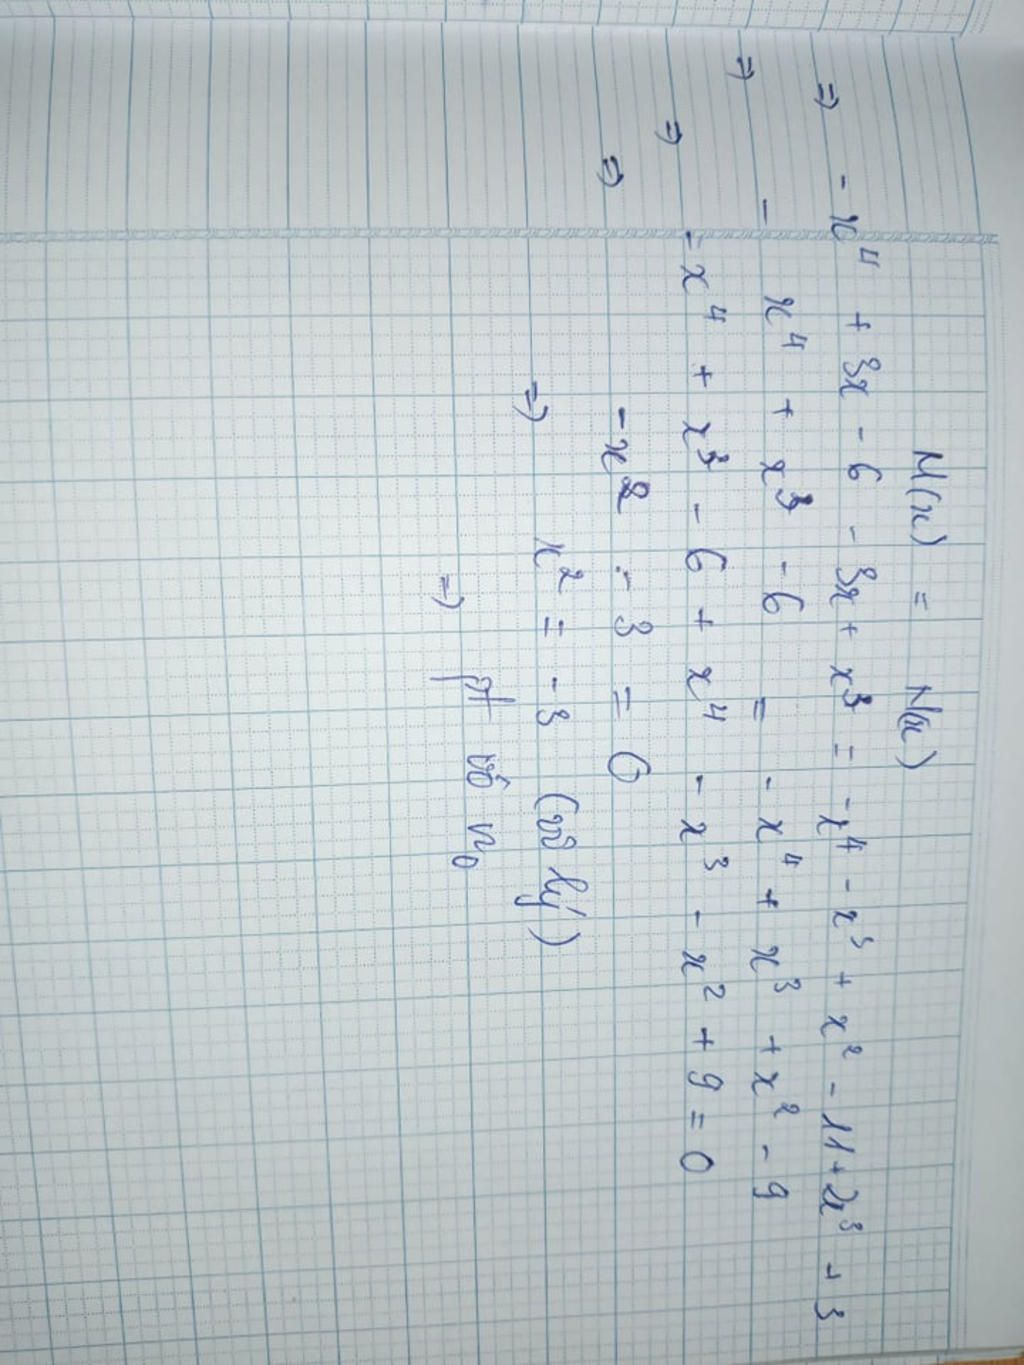 M(x) = N(x)
=) -x⁴ + 3x - 6 - 3x + x³ = -x⁴ - x³ + x² - 11 + 2x³ + 3
=) - x⁴ + x³ - 6 = - x⁴ + x³ + x² - 9
=) -x⁴ + x³ - 6 + x⁴ - x³ - x² + 9 = 0
=) -x² - 3 = 0
=) x² = -3 (vô lý)
=) pt vô n₀